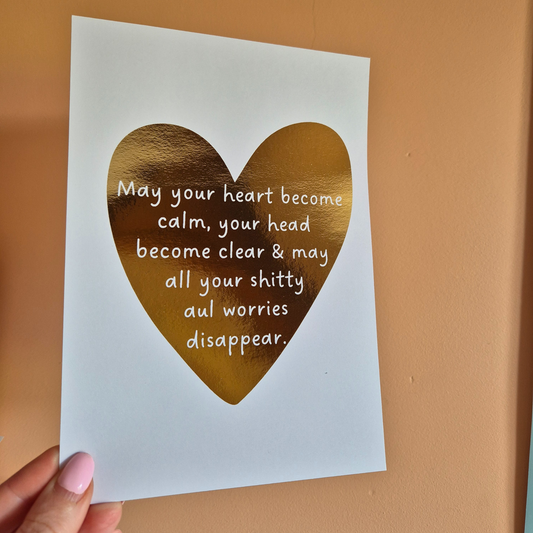 May your heart become
calm, your head
become clear & may
all your shitty
aul worries
disappear.